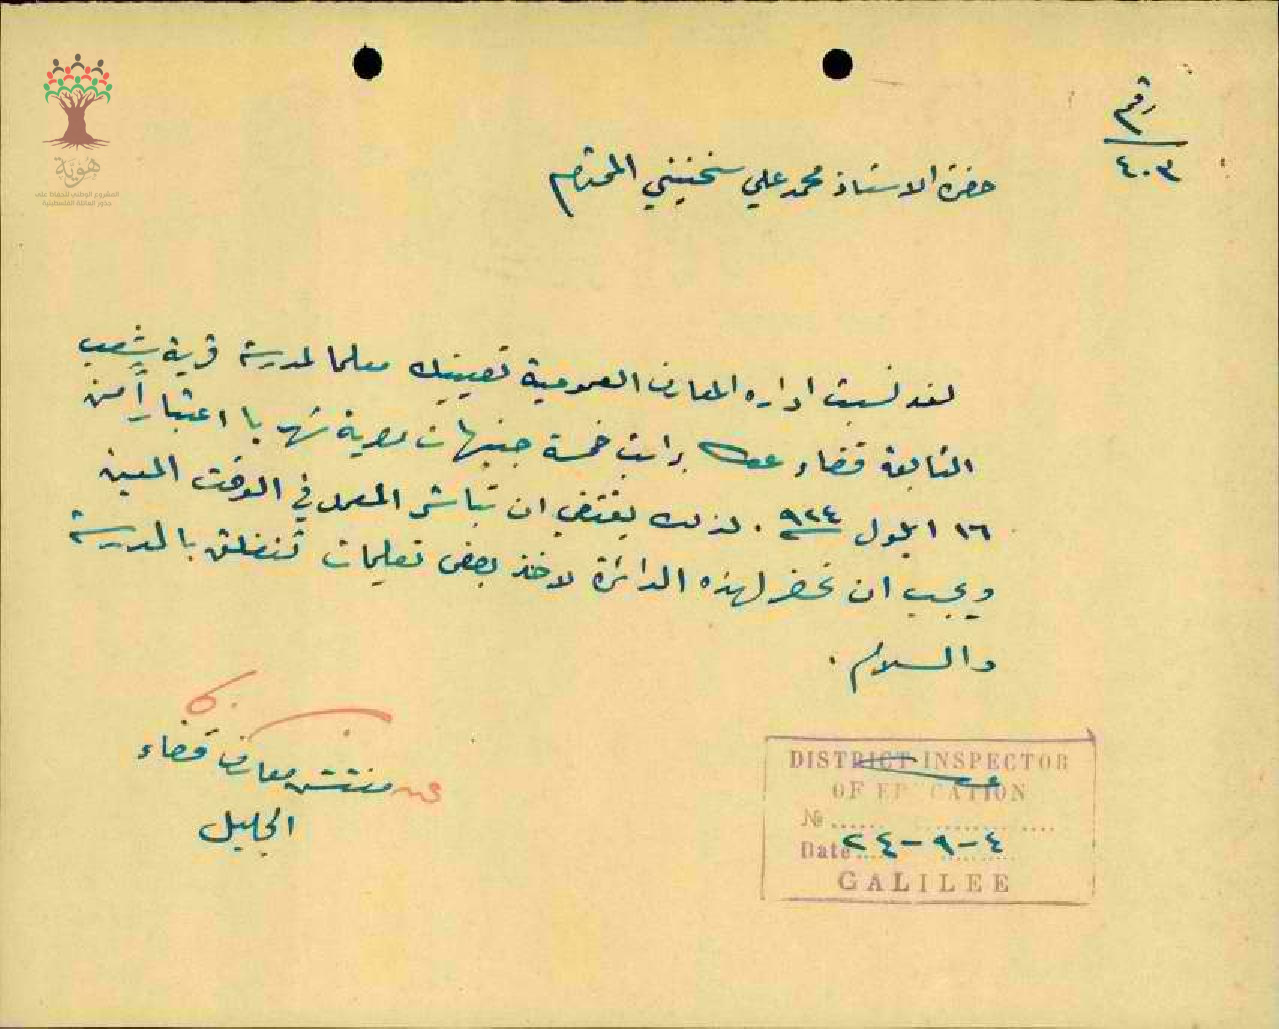 رقم
٤٠٣
هوية
المشروع الوطني للحفاظ على
جذور العائلة الفلسطينية
حضرة الاستاذ محمد علي سخنيني المحترم
لقد نسبت اداره المعارف العمومية تعيينك معلما لمدرسة قرية شعب
التابعة قضاء عكا براتب خمسة جنيهات مصرية شهريا اعتباراً من
١٦ ايلول ٩٢٤ . لذلك يقتضي ان تباشر العمل في الوقت المعين
ويجب ان تحضر لهذه الدائرة لاخذ بعض تعليمات تتعلق بالمدرسة
والسلام .
عن مفتش معارف قضاء
الجليل
DISTRICT INSPECTOR
OF EDUCATION
№
Date ٤-٩-٢٤
GALILEE